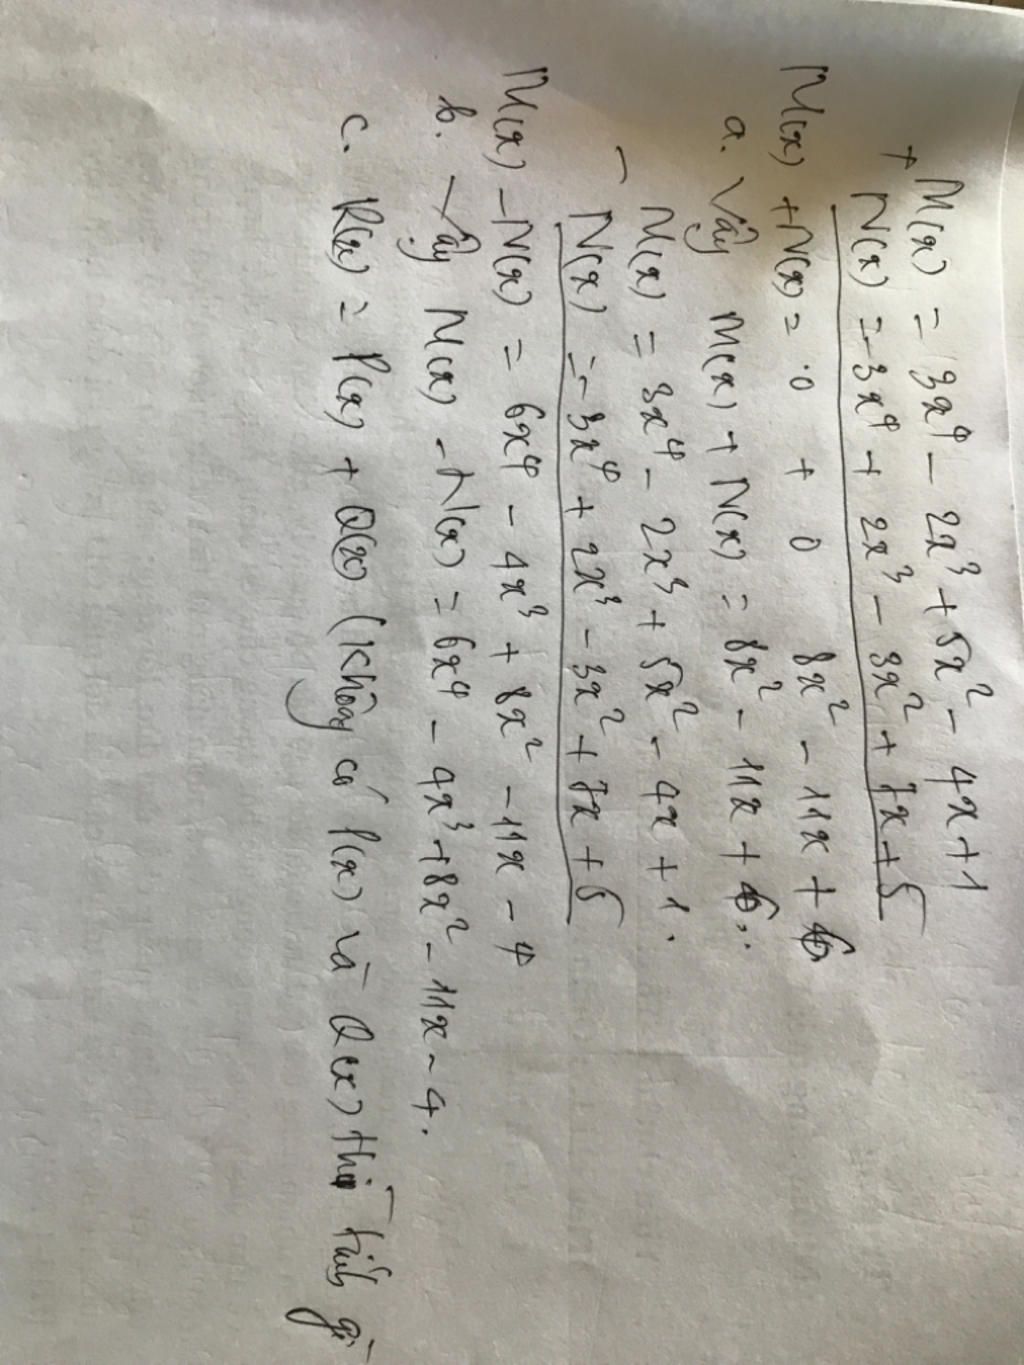 + M(x) = 3x⁴ - 2x³ + 5x² - 4x + 1
N(x) = -3x⁴ + 2x³ - 3x² + 7x + 5
M(x) + N(x) = 0 + 0 8x² - 11x + 6
a. Vậy M(x) + N(x) = 8x² - 11x + 6
- M(x) = 3x⁴ - 2x³ + 5x² - 4x + 1.
N(x) = -3x⁴ + 2x³ - 3x² + 7x + 5
M(x) - N(x) = 6x⁴ - 4x³ + 8x² - 11x - 4
b. Vậy M(x) - N(x) = 6x⁴ - 4x³ + 8x² - 11x - 4.
c. R(x) = P(x) + Q(x) (không có P(x) và Q(x) thì tính gì